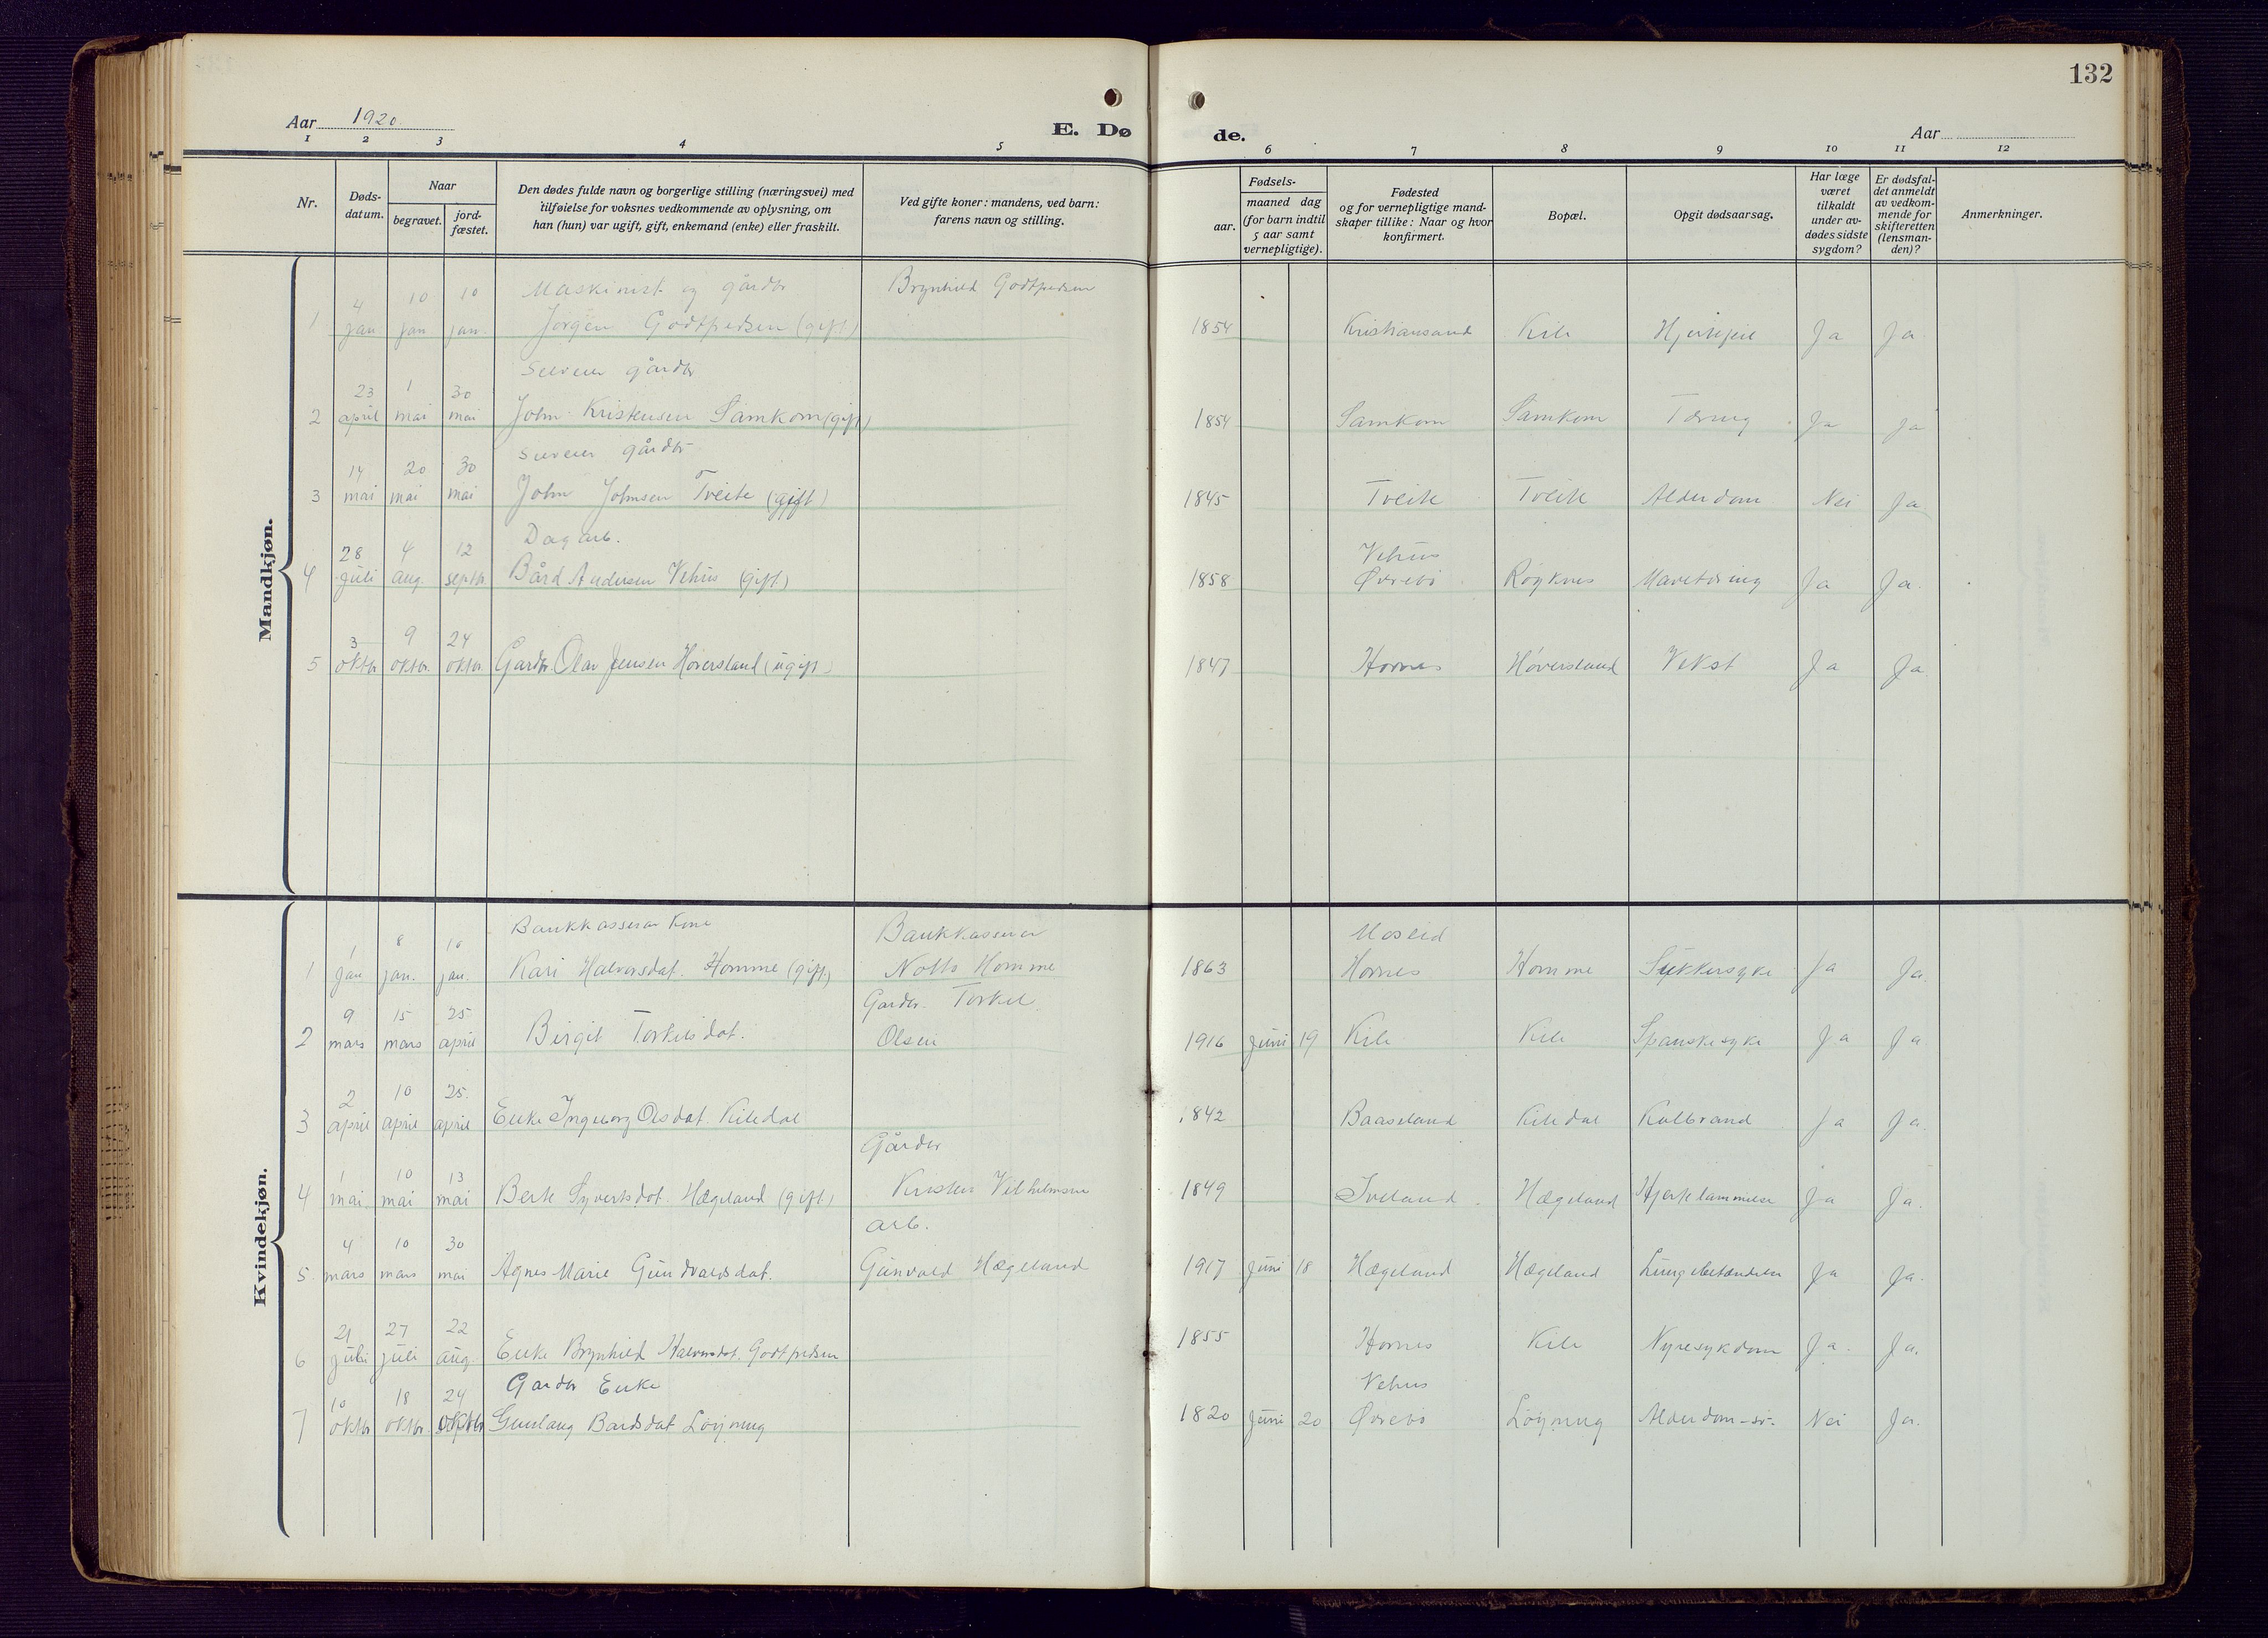 132
Aar 1920.
E. Dø
de.
Aar
1 2 3 4 5 6 7 8 9 10 11 12
Nr.
Døds-
datum.
Naar
begravet.
jord-
fæstet.
Den dødes fulde navn og borgerlige stilling (næringsvei) med
tilføielse for voksnes vedkommende av oplysning, om
han (hun) var ugift, gift, enkemand (enke) eller fraskilt.
Ved gifte koner: mandens, ved barn:
farens navn og stilling.
Fødsels-
aar.
maaned dag
(for barn indtil
5 aar samt
vernepligtige).
Fødested
og for vernepligtige mand-
skaper tillike: Naar og hvor
konfirmert.
Bopæl.
Opgit dødsaarsag.
Har læge
været
tilkaldt
under av-
dødes sidste
sygdom?
Er dødsfal-
det anmeldt
av vedkom-
mende for
skifteretten
(lensman-
den)?
Anmerkninger.
Mandkjøn.
4 10 10 Maskinist og gårdbr Brynhild Godtfredsen
1 jan. jan. jan. Jørgen Godtfredsen (gift) 1854 Kristiansand Kile Hjertefeil Ja Ja
Selveier gårdbr
23 1 30
2 april mai mai John Kristensen Samkom (gift) 1854 Samkom Samkom Tæring Ja Ja
Selveier gårdbr
14 20 30
3 mai mai mai John Johnsen Tveite (gift) 1845 Tveite Tveite Alderdom Nei Ja
Dagarb.
28 4 12 Vehus
4 juli aug. septbr Bård Andersen Vehus (gift) 1858 Øvrebø Røyknes Mavetæring Ja Ja.
3 9 24
5 oktbr oktbr. oktbr. Gardbr. Olav Jensen Høversland (ugift) 1847 Hornes Høversland Vekst Ja Ja.
Kvindekjøn.
1 8 10 Bankkasserar Kone Bankkasserer Moseid
1 jan jan. jan. Kari Halvorsdat. Homme (gift) Notto Homme 1863 Hornes Homme Sukkersyke Ja Ja.
9 15 25 Gardbr. Torkel
2 mars mars april Birgit Torkelsdat. Olsen 1916 juni 19 Kile Kile Spanskesyke Ja Ja
2 10 25.
3 april april april Enke Ingeborg Olsdat. Kiledal 1842 Baaseland Kiledal Kolbrand Ja Ja.
Gårdbr
1 10 13
4 mai mai mai Berte Syvertsdat. Hægeland (gift) Kristen Vilhelmsen 1849 Iveland Hægeland Hjertelammelse Ja Ja.
arb.
4 10 30
5 mars mars mai Agnes Marie Gundvaldsdat. Gunvald Hægeland 1917 juni 18 Hægeland Hægeland Lungebetændelse Ja Ja.
21 27 22
6 juli juli aug. Enke Brynhild Halvorsdat. Godtfredsen 1855 Hornes Kile Nyresykdom Ja. Ja.
Gardbr Enke Vehus
10 18 24
7 oktbr oktbr. oktbr Gunlaug Bardsdat Løyning 1820 juni 20 Øvrebø Løyning Alderdom Nei Ja.